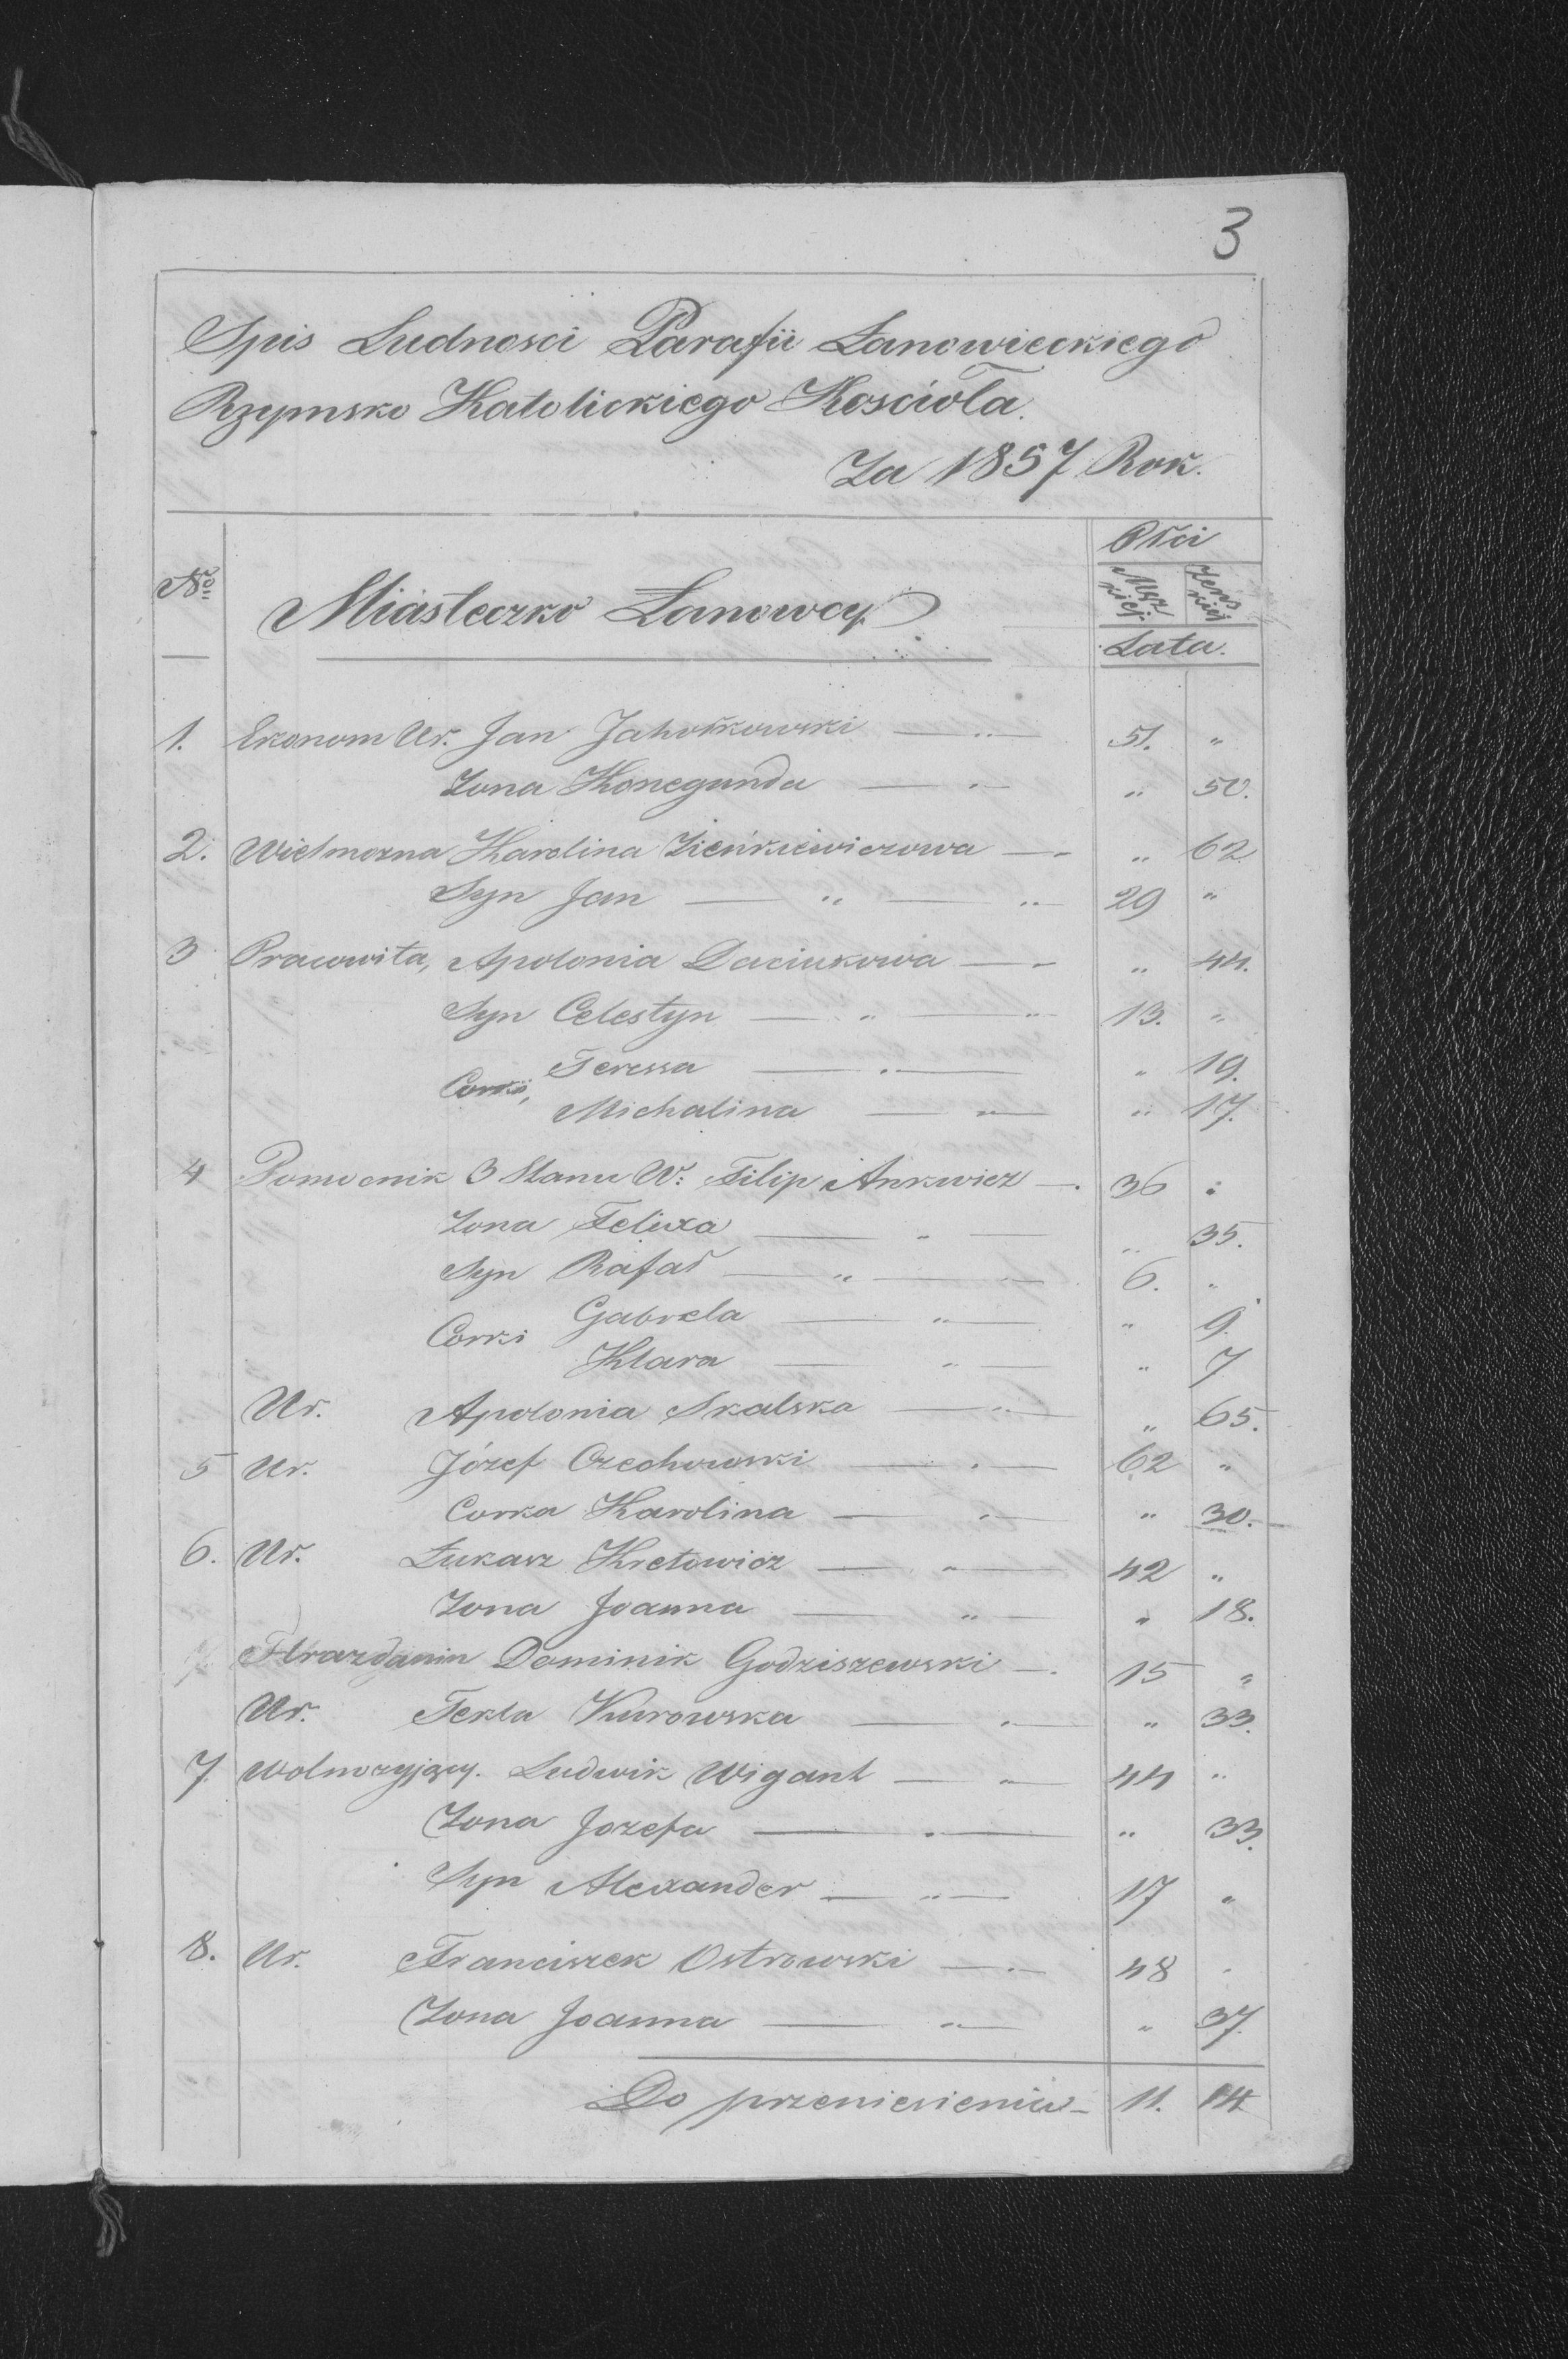 3
Spis Ludnosci Parafii Łanowieckiego
Rzymsko Katolickiego Kościoła.
Za 1857 Rok.
Płci
No Miasteczko Łanowcy. Męzkiej. Żenskiej
Lata.
1. Ekonom Ur. Jan Jahołkowski — " — 51. "
Zona Konegunda — " — " 50.
2. Wielmozna Karolina Zieńkiewiczowa — " 62
Syn Jan — " — " — 29 "
3 Pracowita, Apolonia Daciukowa — " 44.
Syn Celestyn — " — " 13. "
Teressa — " — " 19.
Corki,
Michalina — " — " 17.
4 Pomocnik 3 Stanu W: Filip Ankwicz — 36 "
Zona Felixa — " — " 35.
Syn Rafał — " — " — 6. "
Gabrela — " — " 9.
Corki
Klara — " — " 7
Ur. Apolonia Skalska — " — " 65.
5 Ur. Józef Orzechowski — " — 62 "
Corka Karolina — " — " 30.
6. Ur. Łukasz Kretowicz — " — 42 "
Zona Joanna — " — " 18.
Dominik Godziszewski — 15 "
Ur. Tekla Kurowska — " — " 33.
7. Wolnozyjący. Ludwik Wigant — " — 44 "
Zona Jozefa — " — " 33.
Syn Alexander — " — 17 "
8. Ur. Franciszek Ostrowski — " — 48 "
Zona Joanna — " — " 37.
Do przeniesieniu — 11. 14